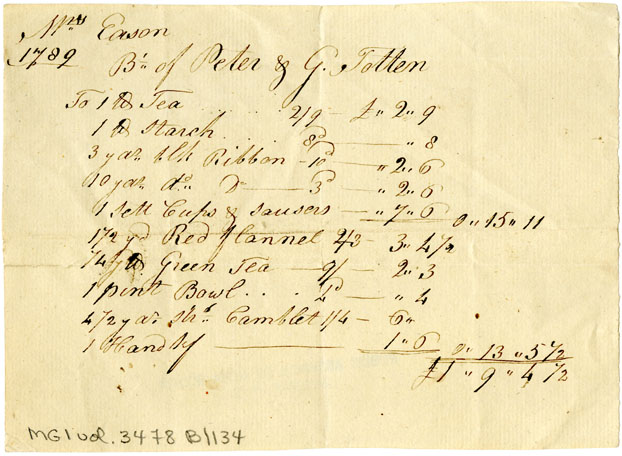 Mrs Eason
1789
Bt of Peter & G. Totten
To 1 lb Tea . . . . . 2/9 — £ " 2 " 9
1 lb Starch . . . . 8d — " 8
3 yds blk Ribbon — 10d — " 2 " 6
10 yds do D — 3d — " 2 " 6
1 Sett Cups & Sausers — " 7 " 6 0 " 15 " 11
1 1/2 yd Red flannel 2/3 — 3 " 4 1/2
1/4 lb Green Tea — 9/ — 2 " 3
1 pint Bowl . . . 4d — " 4
4 1/2 yds Camblet 1/4 — 6 "
1 Handkf — 1 " 6 0 " 13 " 5 1/2
£1 " 9 " 4 1/2
MG1 vol. 3478 B/134